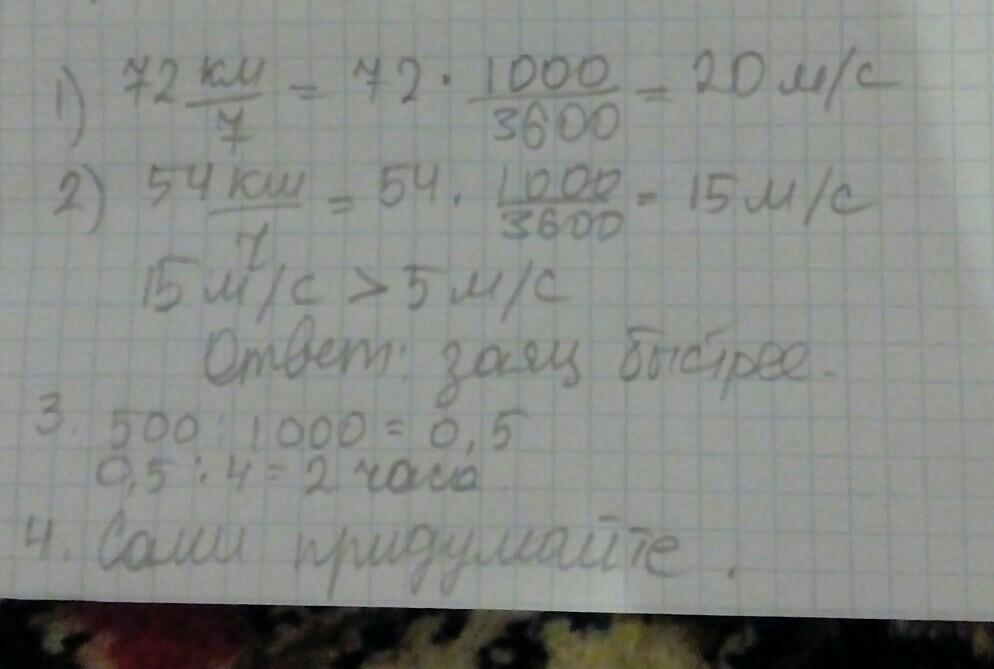 1) 72 км/7 = 72 · 1000/3600 = 20 м/с
2) 54 км/7 = 54 · 1000/3600 = 15 м/с
15 м/с > 5 м/с
Ответ: заяц быстрее.
3. 500 : 1000 = 0,5
0,5 : 4 = 2 часа
4. Сами придумайте.